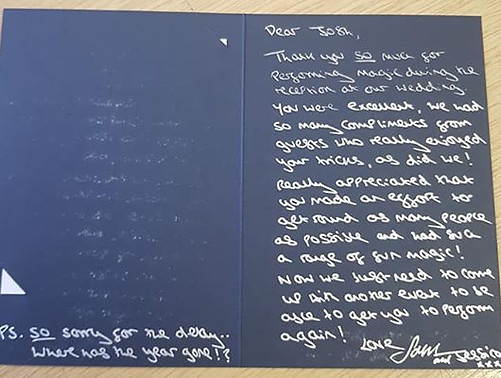 Dear Josh,
Thank you SO much for
performing magic during the
reception at our wedding.
You were excellent, we had
so many compliments from
guests who really enjoyed
your tricks, as did we!
Really appreciated that
you made an effort to
get round as many people
as possible and had such
a range of fun magic!
Now we just need to come
up with another event to be
able to get you to perform
again!
Love Sam
and Jessica
xxx
PS. SO sorry for the delay..
Where has the year gone!?